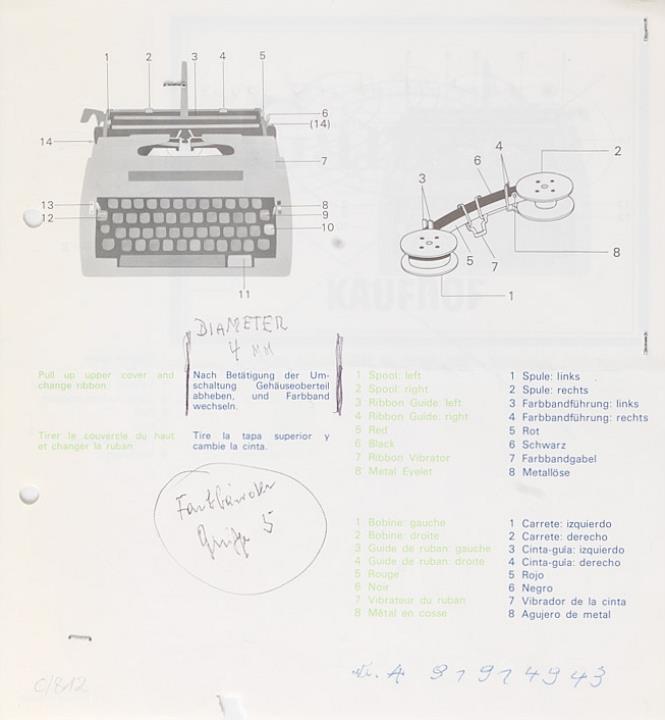 1 2 3 4 5
6
(14)
14
7
13
12
8
9
10
11
3 6 4 2
5 7 8
1
KAUFHOF
DIAMETER
4 MM
Pull up upper cover and
change ribbon.
Nach Betätigung der Um-
schaltung Gehäuseoberteil
abheben, und Farbband
wechseln.
Tirer le couvercle du haut
et changer la ruban.
Tire la tapa superior y
cambie la cinta.
1 Spool: left
2 Spool: right
3 Ribbon Guide: left
4 Ribbon Guide: right
5 Red
6 Black
7 Ribbon Vibrator
8 Metal Eyelet
1 Spule: links
2 Spule: rechts
3 Farbbandführung: links
4 Farbbandführung: rechts
5 Rot
6 Schwarz
7 Farbbandgabel
8 Metallöse
1 Bobine: gauche
2 Bobine: droite
3 Guide de ruban: gauche
4 Guide de ruban: droite
5 Rouge
6 Noir
7 Vibrateur du ruban
8 Métal en cosse
1 Carrete: izquierdo
2 Carrete: derecho
3 Cinta-guía: izquierdo
4 Cinta-guía: derecho
5 Rojo
6 Negro
7 Vibrador de la cinta
8 Agujero de metal
5
A 91914943
C/812